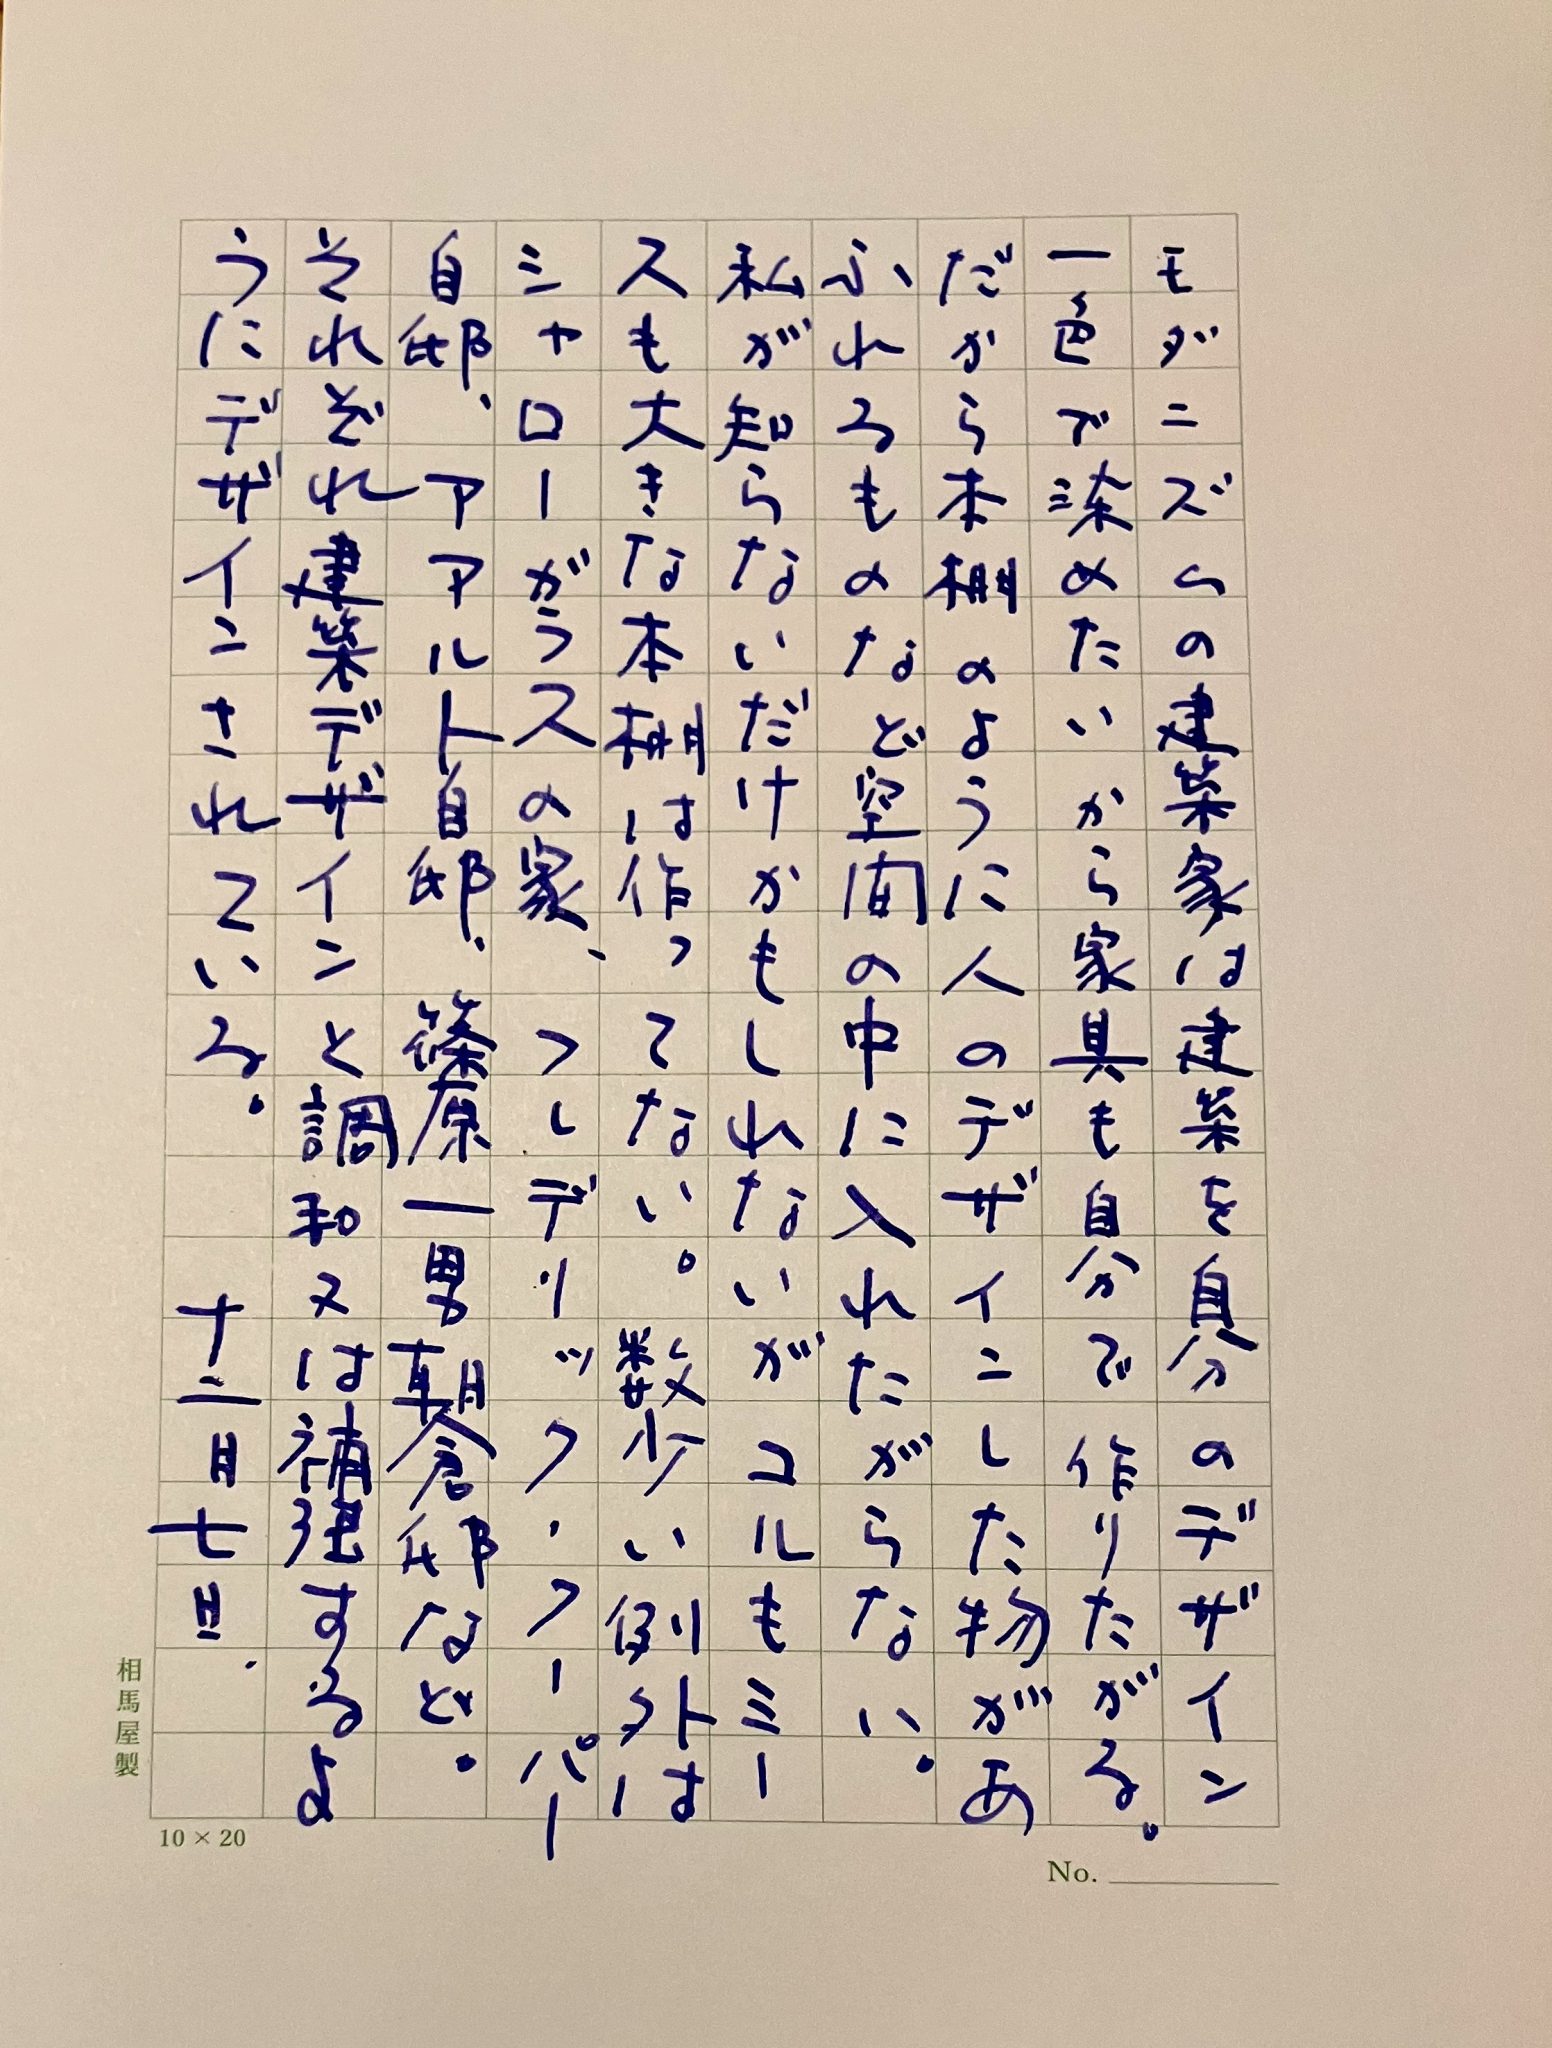 モダニズムの建築家は建築を自分のデザイン
一色で染めたいから家具も自分で作りたがる。
だから本棚のように人のデザインした物があ
ふれるものなど空間の中に入れたがらない。
私が知らないだけかもしれないがコルもミー
スも大きな本棚は作ってない。数少い例外は
シャローがラスの家、フレデリック・フーパー
自邸、アアルト自邸、篠原一男朝倉邸など。
それぞれ建築デザインと調和又は補強するよ
うにデザインされている。 十二月七日.
相馬屋製
10 × 20
No.